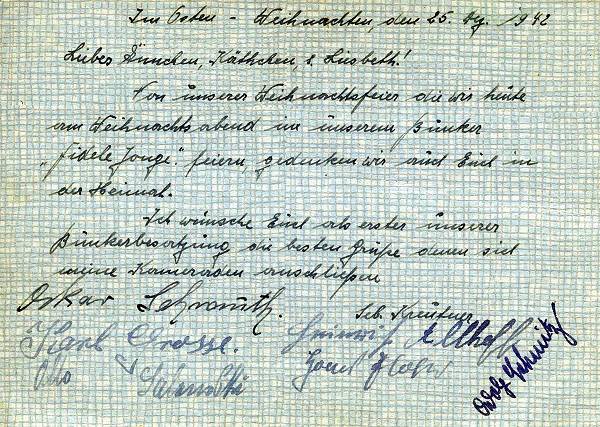 Im Osten - Weihnachten, den 25. Dez. 1942
Liebes Ännchen, Käthchen, u. Lisbeth!
Von unserer Weihnachtsfeier die wir heute
am Weihnachtsabend in unserem Bunker
„Fidele Jonge." feiern, gedenken wir auch Euch in
der Heimat.
Ich wünsche Euch als erster unserer
Bunkerbesatzung die besten Grüße denen sich
meine Kameraden anschließen
Oskar
Seb. Kreutner
Karl Grosse.
Heinrich Althoff
Josef
Adolf Schmitz